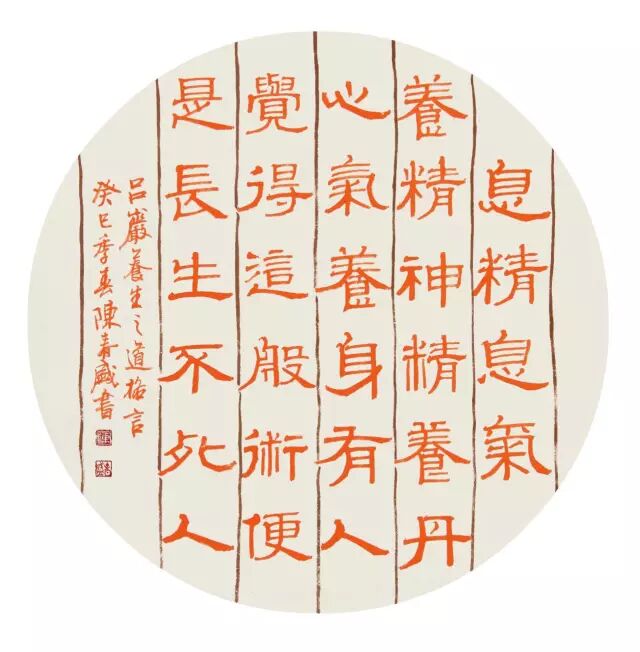 息精息氣
養精神精養丹
心氣養身有人
覺得這般術便
是長生不死人
呂巖養生之道格言
癸巳季春陳青盛書